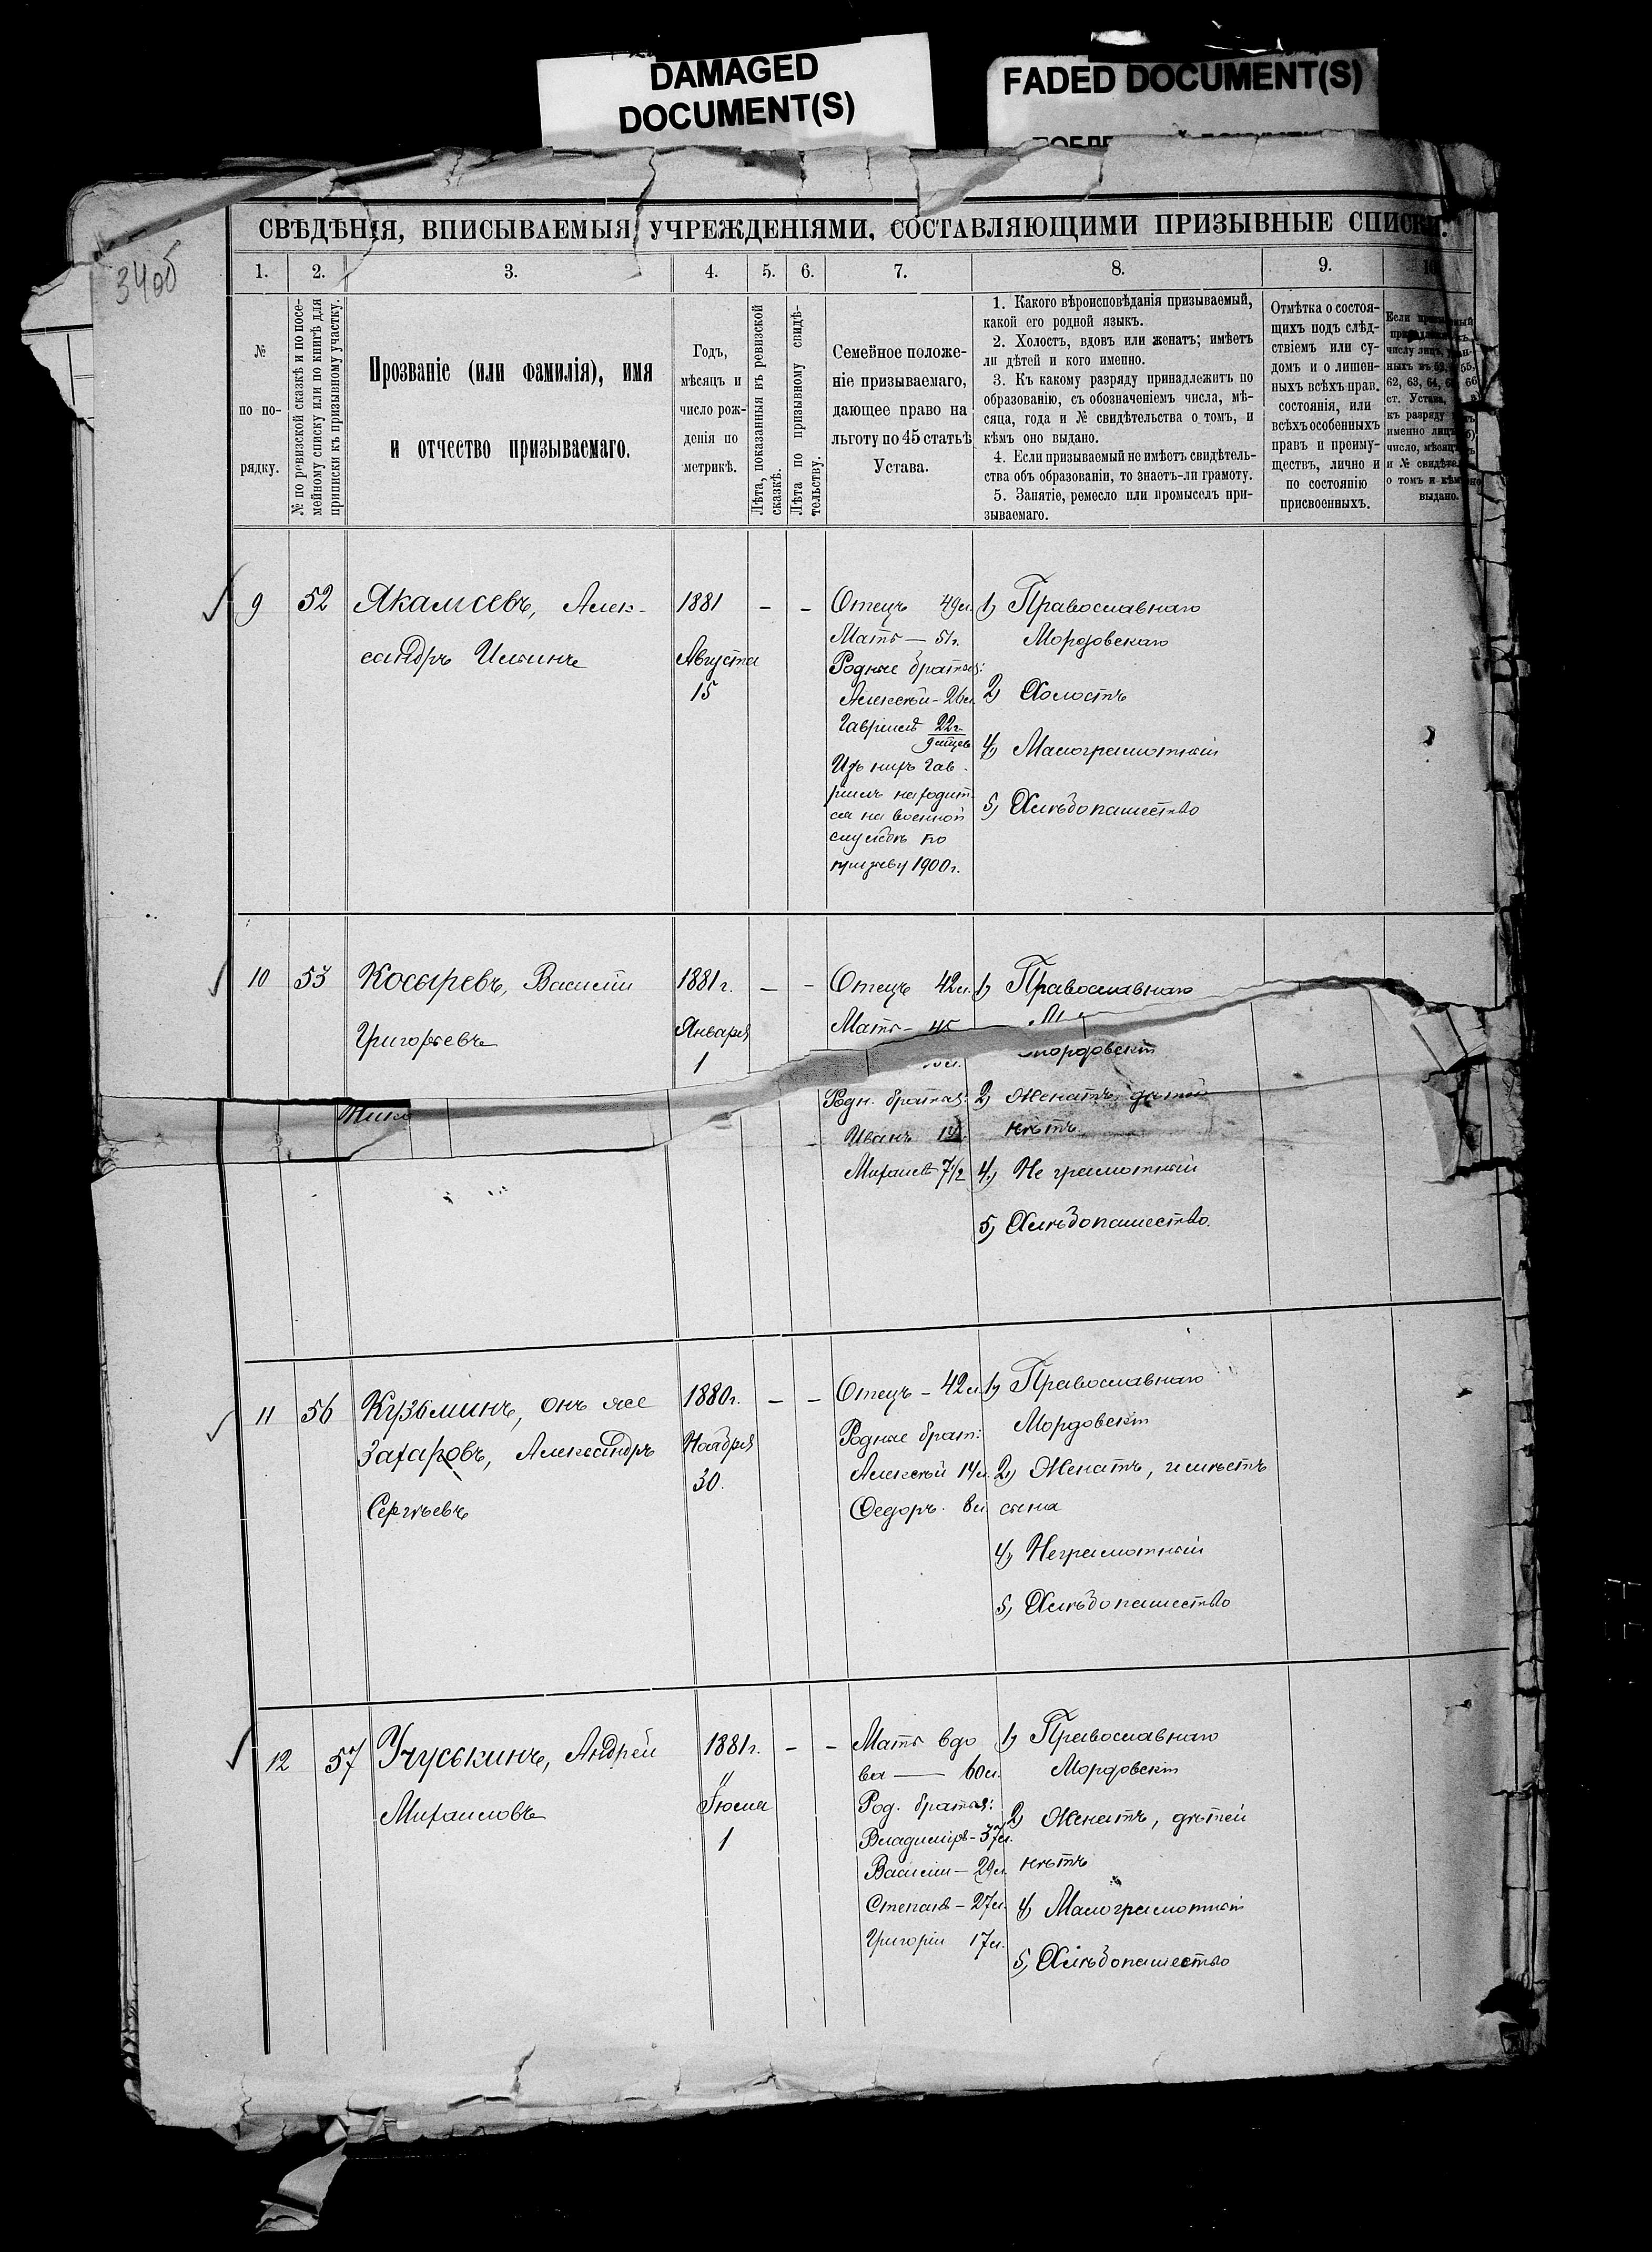 DAMAGED
DOCUMENT(S)
FADED DOCUMENT(S)
34об
СВѢДѢНІЯ, ВПИСЫВАЕМЫЯ УЧРЕЖДЕНІЯМИ, СОСТАВЛЯЮЩИМИ ПРИЗЫВНЫЕ СПИСКИ.
1. 2. 3. 4. 5. 6. 7. 8. 9. 10
№
по по-
рядку.
№ по ревизской сказкѣ и по посе-
мейному списку или по книгѣ для
приписки къ призывному участку.
Прозваніе (или фамилія), имя
и отчество призываемаго.
Годъ,
мѣсяцъ и
число рож-
денія по
метрикѣ.
Лѣта, показанныя въ ревизской
сказкѣ.
Лѣта по призывному свидѣ-
тельству.
Семейное положе-
ніе призываемаго,
дающее право на
льготу по 45 статьѣ
Устава.
1. Какого вѣроисповѣданія призываемый,
какой его родной языкъ.
2. Холостъ, вдовъ или женатъ; имѣетъ
ли дѣтей и кого именно.
3. Къ какому разряду принадлежитъ по
образованію, съ обозначеніемъ числа, мѣ-
сяца, года и № свидѣтельства о томъ, и
кѣмъ оно выдано.
4. Если призываемый не имѣетъ свидѣтель-
ства объ образованіи, то знаетъ-ли грамоту.
5. Занятіе, ремесло или промыселъ при-
зываемаго.
Отмѣтка о состоя-
щихъ подъ слѣд-
ствіемъ или су-
домъ и о лишен-
ныхъ всѣхъ прав.
состоянія, или
всѣхъ особенныхъ
правъ и преиму-
ществъ, лично и
по состоянію
присвоенныхъ.
Если
числу лицъ,
62, 63, 64, 66
ст. Устава,
къ разряду
именно лицъ
число,
и №
о томъ и кѣмъ
выдано.
9 52 Якамсевъ, Алек-
сандръ Ильинъ
1881
Августа
15
– –
Отецъ 49л.
Мать — 51г.
Родные братья:
Алексѣй - 26л.
Гавріилъ 22г.
Изъ нихъ Гав-
ріилъ находит-
ся на военной
службѣ по
призыву 1900г.
1) Православнаго
Мордовскаго
2) Холостъ
4) Малограмотный
5) Хлѣбопашество
10 53 Косыревъ, Василій
Григорьевъ
1881г.
Января
1
– –
Отецъ 42л.
Мать - 45
Родн. братья:
Иванъ
Михаилъ 7½
1) Православнаго
Мордовскій
2) Женатъ, дѣтей
нѣтъ.
4) Не грамотный
5) Хлѣбопашество.
11 56 Кузьминъ, онъ же
Захаровъ, Александръ
Сергѣевъ
1880г.
Ноября
30.
– –
Отецъ - 42л
Родные брат:
Алексѣй 14л.
Федоръ. 8л
1) Православнаго
Мордовскій
2) Женатъ, имѣетъ
сына
4) Неграмотный
5) Хлѣбопашество
12 57 Учуськинъ, Андрей
Михаиловъ
1881г.
Іюля
1
– –
Мать вдо
ва — 60л.
Род. братья:
Владиміръ - 37л.
Василій - 29л.
Степанъ - 27л.
Григорій 17л.
1) Православнаго
Мордовскій
2) Женатъ, дѣтей
нѣтъ
4) Малограмотный
5) Хлѣбопашество